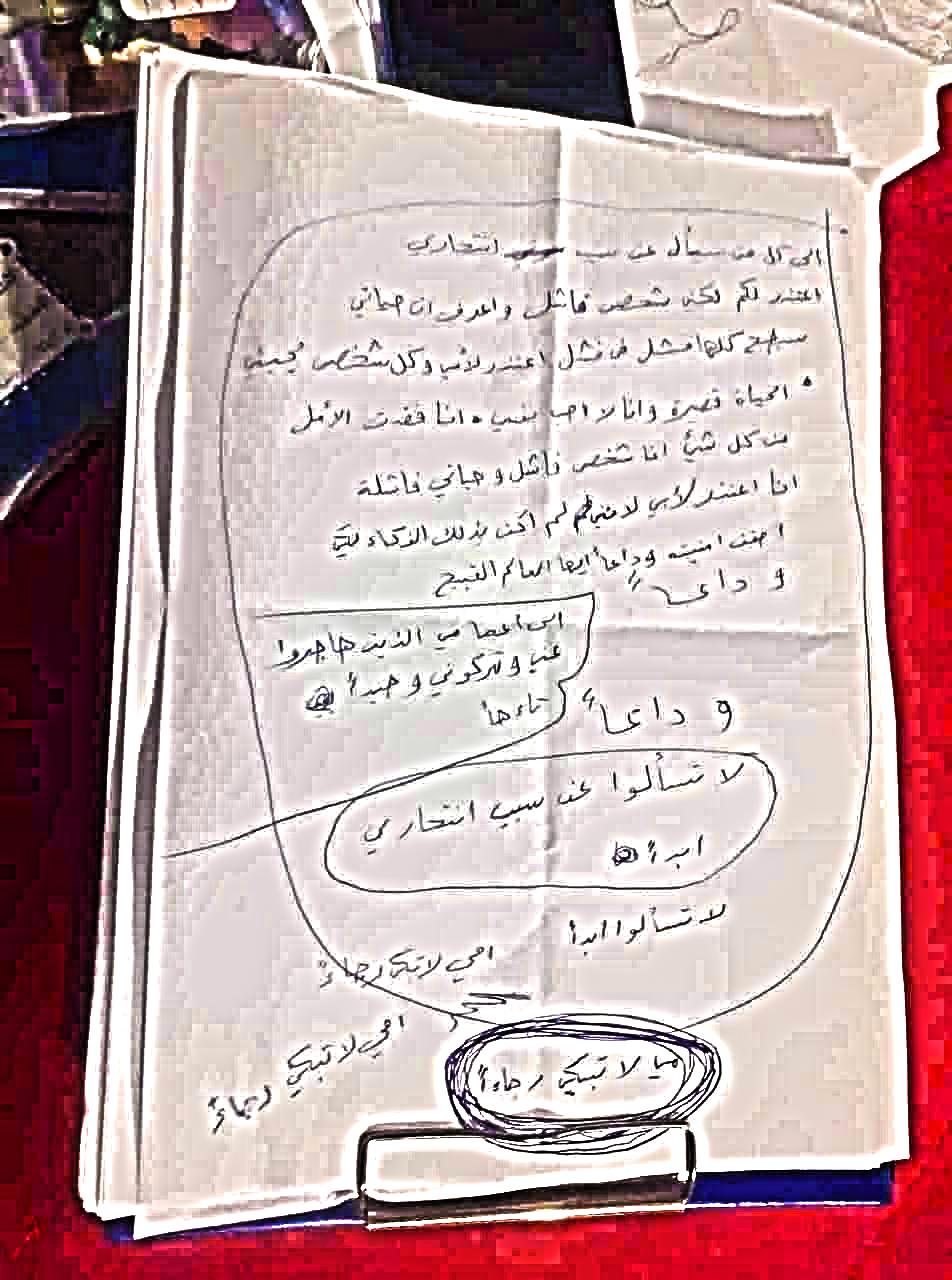 الى كل من سيسأل عن سبب انتحاري
اعتذر لكم لكني شخص فاشل واعرف ان حياتي
ستصبح كلها فشل في فشل اعتذر لأمي وكل شخص يحبني
الحياة قصيرة وانا لا احب نفسي. انا فقدت الأمل
من كل شيئ انا شخص فاشل وحياتي فاشلة
انا اعتذر لأبي لأنني لم اكن بذلك الذكاء لكي
احقق امنيته وداعاً ايها العالم القبيح
وداعاً
الى اعمامي الذين هاجروا
عني وتركوني وحيداً
وداعاً
لا تسألوا عن سبب انتحاري
ابداً
لا تسألوا ابداً
امي لا تبكي رجاءً
امي لا تبكي رجاءً
لا تبكي رجاءاً